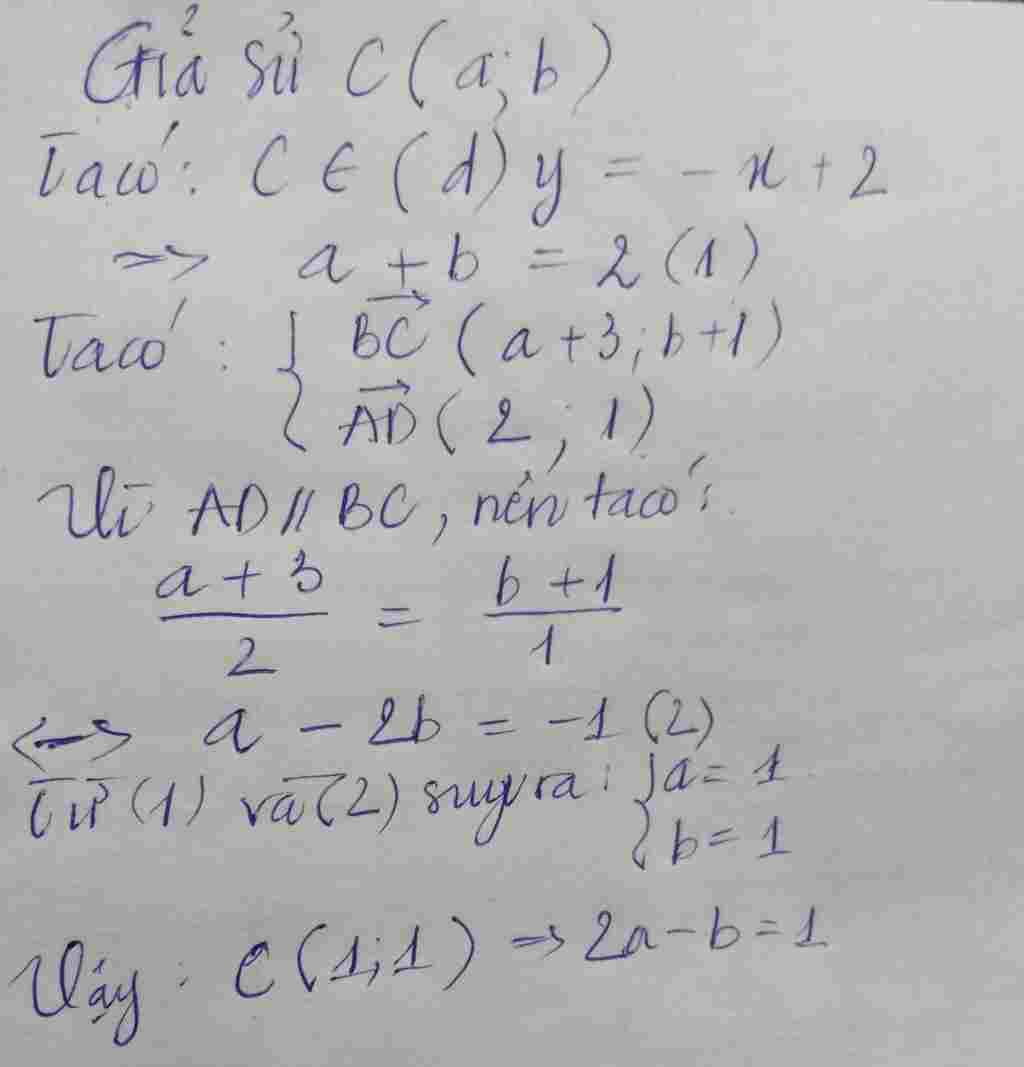 Giả sử C(a;b)
Ta có: C ∈ (d) y = -x + 2
=> a + b = 2 (1)
Ta có: { \overrightarrow{BC} (a+3; b+1)
\overrightarrow{AD} (2; 1)
Vì AD // BC, nên ta có:
\frac{a+3}{2} = \frac{b+1}{1}
<=> a - 2b = -1 (2)
Từ (1) và (2) suy ra: { a = 1
b = 1
Vậy: C(1;1) => 2a - b = 1